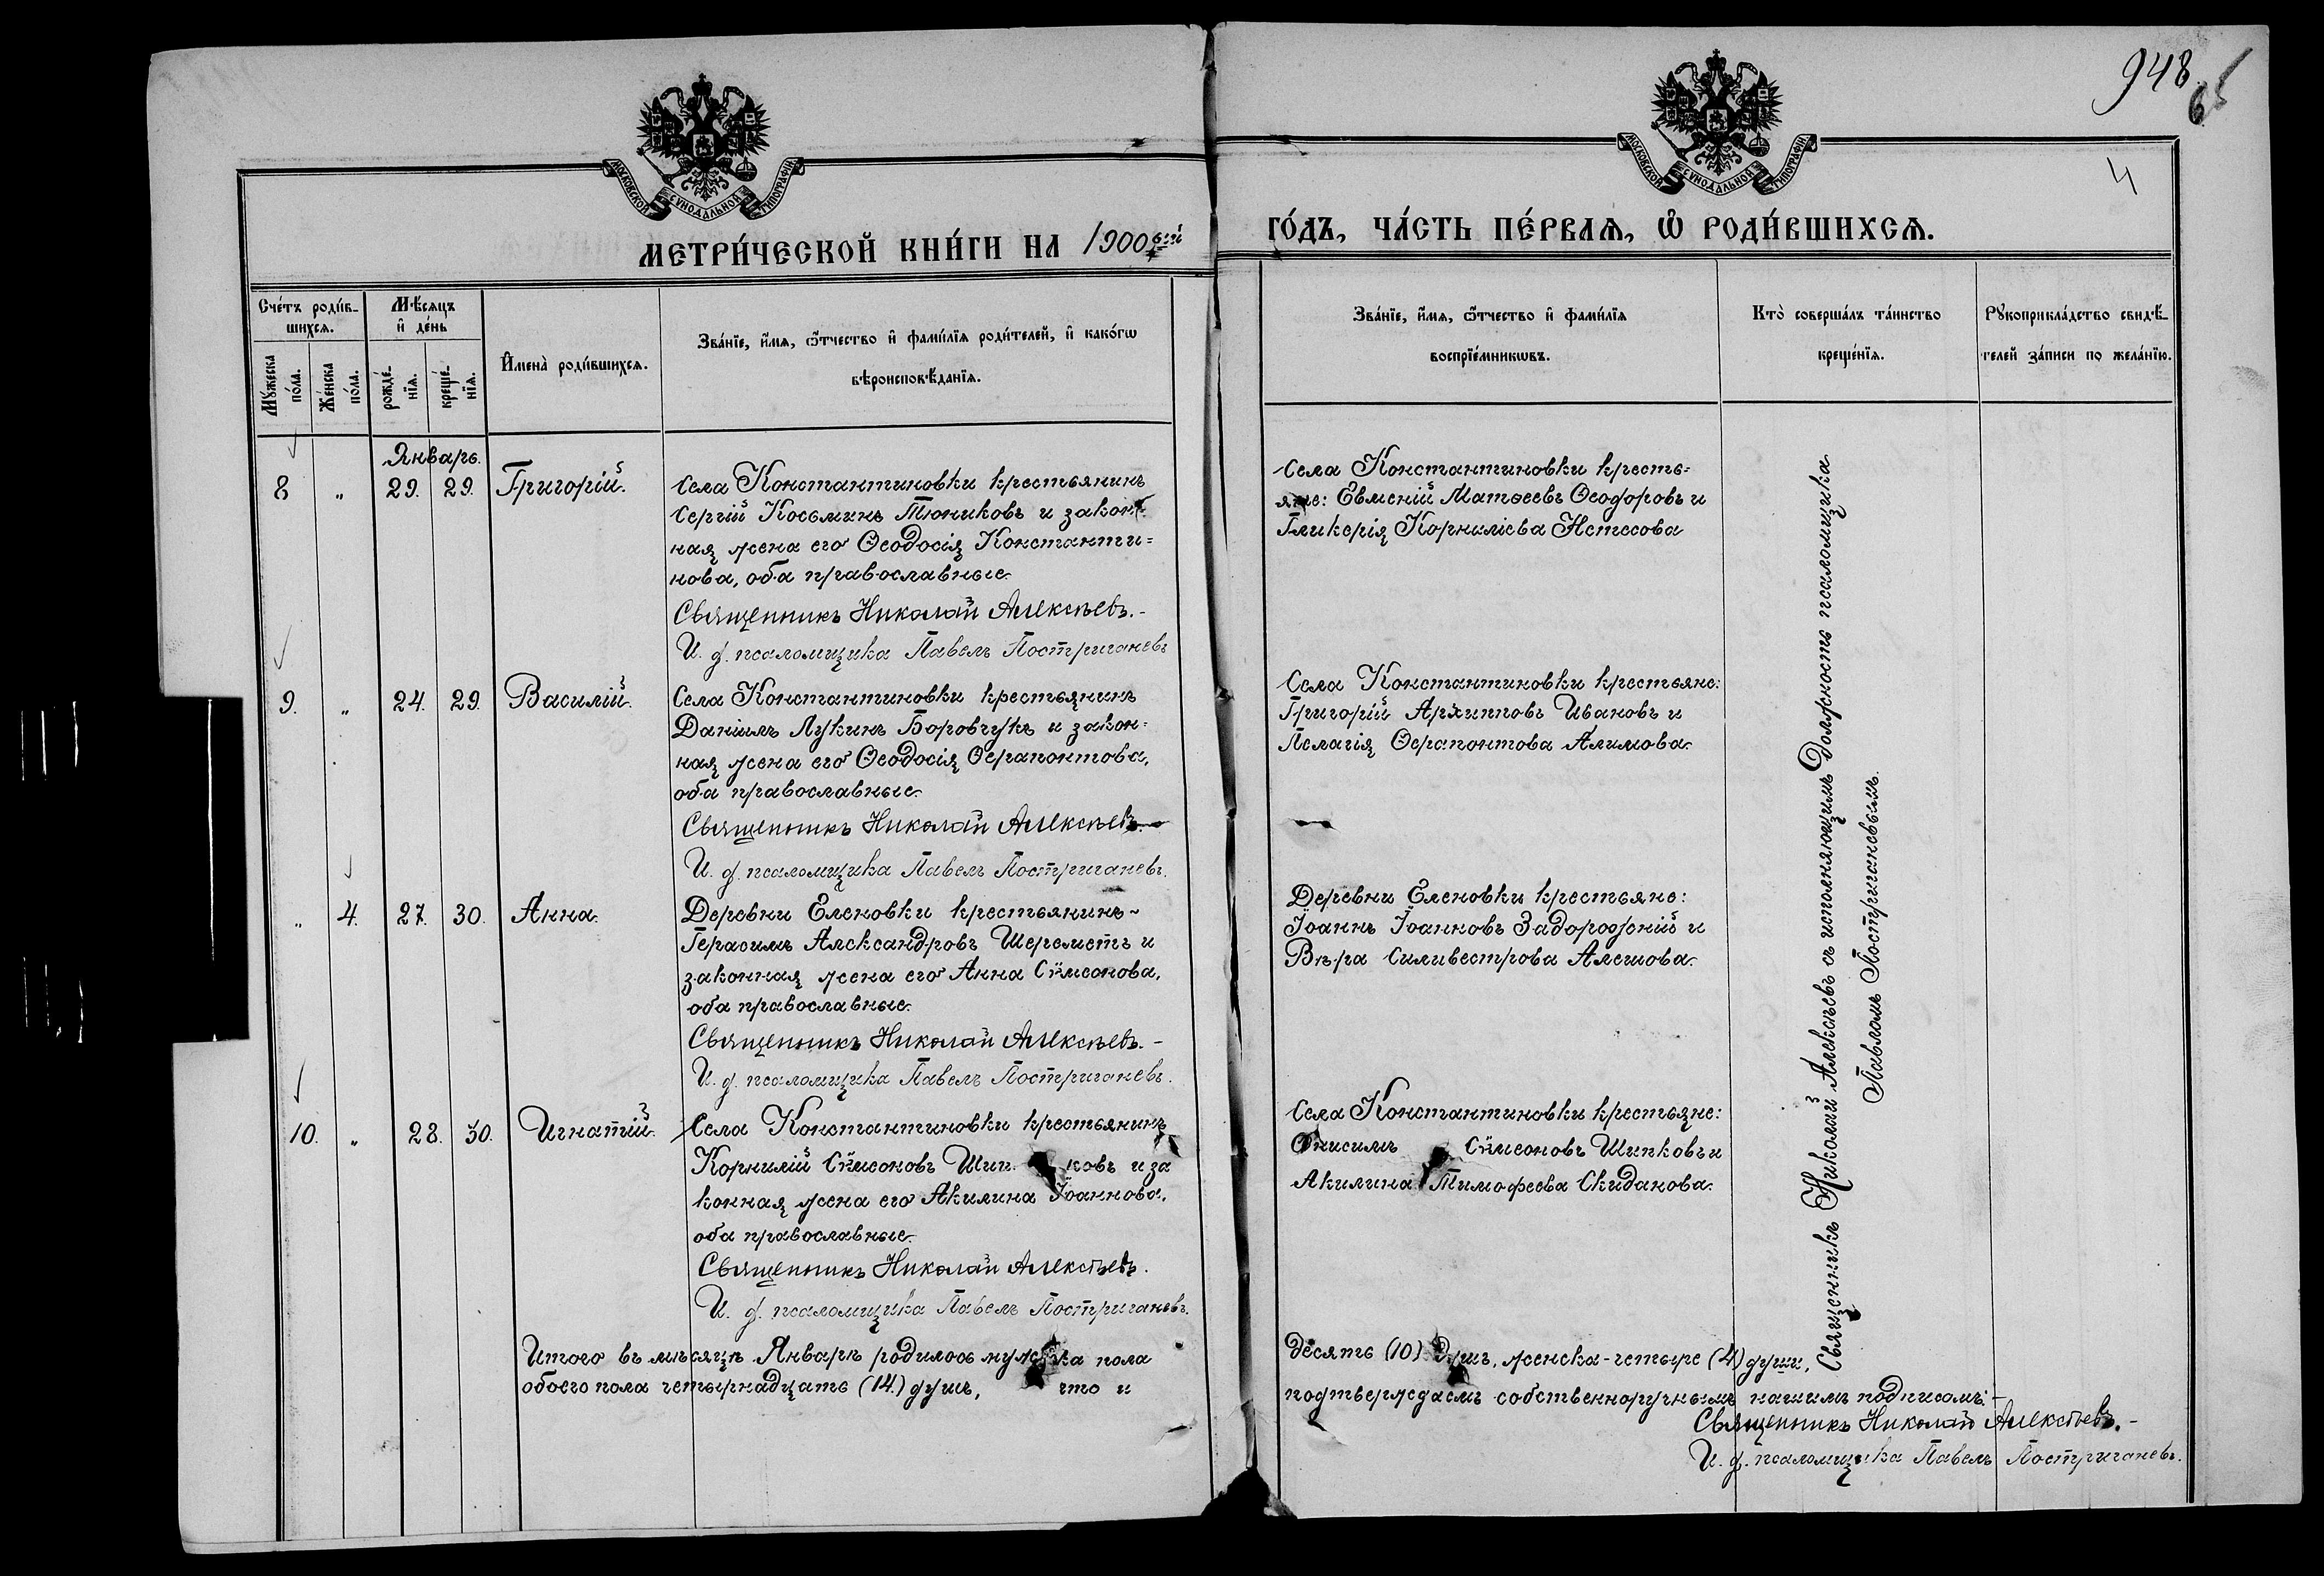 948
65
4
МОСКОВСКОЙ СѴНОДАЛЬНОЙ ТИПОГРАФІИ
МОСКОВСКОЙ СѴНОДАЛЬНОЙ ТИПОГРАФІИ
МЕТРИ́ЧЕСКОЙ КНИ́ГИ НА 1900ый ГО́ДЪ, ЧА́СТЬ ПЕ́РВАѦ, Ѽ РОДИ́ВШИХСѦ.
Сче́тъ роди́в-
шихсѧ.
Мꙋжеска по́ла.
Же́нска по́ла.
Мѣ́сѧцъ
и҆ де́нь
рожде́-
нїѧ.
креще́-
нїѧ.
И҆мена̀ роди́вшихсѧ.
Зва́нїе, и҆́мѧ, ѻ҆́тчество и҆ фами́лїѧ роди́телей, и҆ како́гѡ
вѣроисповѣ́данїѧ.
Зва́нїе, и҆́мѧ, ѻ҆́тчество и҆ фами́лїѧ
воспрїе́мникѡвъ.
Кто̀ соверша́лъ та́инство
креще́нїѧ.
Рꙋкоприкла́дство свидѣ́-
телей за́писи по жела́нїю.
Январь.
8 „ 29. 29. Григорій.
Села Константиновки крестьянинъ
Сергій Косьминъ Тюниковъ и закон-
ная жена его Ѳеодосія Константи=
нова, оба православные.
Священникъ Николай Алексѣевъ.-
И. д. псаломщика Павелъ Постриганевъ
Села Константиновки кресть=
яне: Евмсній Матѳеевъ Ѳеодоровъ и
Гликерія Корниліева Нетесова
9. „ 24. 29. Василій.
Села Константиновки крестьянинъ
Даніилъ Лукинъ Боровчукъ и закон-
ная жена его Ѳеодосія Ѳерапонтова,
оба православные.
Священникъ Николай Алексѣевъ.-
И. д. псаломщика Павелъ Постриганевъ.
Села Константиновки крестьяне:
Григорій Архипповъ Ивановъ и
Пелагія Ѳерапонтова Алимова.
„ 4. 27. 30. Анна.
Деревни Еленовки крестьянинъ-
Герасимъ Александровъ Шереметъ и
законная жена его Анна Сѵмеонова,
оба православные.
Священникъ Николай Алексѣевъ.-
И. д. псаломщика Павелъ Постриганевъ.
Деревни Еленовки крестьяне:
Іоаннъ Іоанновъ Задорожній и
Вѣра Силивестрова Алешова.
10. „ 28. 30. Игнатій.
Села Константиновки крестьянинъ
Корнилій Сѵмеоновъ Шип ковъ и за
конная жена его Акилина Іоаннова,
оба православные.
Священникъ Николай Алексѣевъ.
И. д. псаломщика Павелъ Постриганевъ.
Села Константиновки крестьяне:
Онисимъ Сѵмеоновъ Шипковъ и
Акилина Тимофеева Скиданова.
Священникъ Николай Алексѣевъ съ исполняющимъ должность псаломщика
Павломъ Постриганевымъ.
Итого въ мѣсяцѣ Январѣ родилось мужска пола десять (10) душъ, женска-четыре (4) души,
обоего пола четырнадцать (14.) душъ, что и подтверждаемъ собственноручнымъ нашимъ подписомъ:-
Священникъ Николай Алексѣевъ.-
И. д. псаломщика Павелъ Постриганевъ.